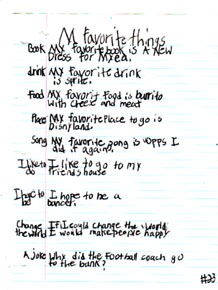 M favorite things
Book MY favorite book is A New
Dress for Mxea.
drink MY favorite drink
is sprite.
Food MY favorit Food is burrito
with cheese and meat
Place MY favorite Place to go is
Disnyland.
Song MY favorite song is Opps I
did it again.
I like to I like to go to my
do friends house
I hope to I hope to be a
be dancer.
Change If I could change the world
the world I would make people happy
A joke Why did the Football coach go
to the bank?
#23